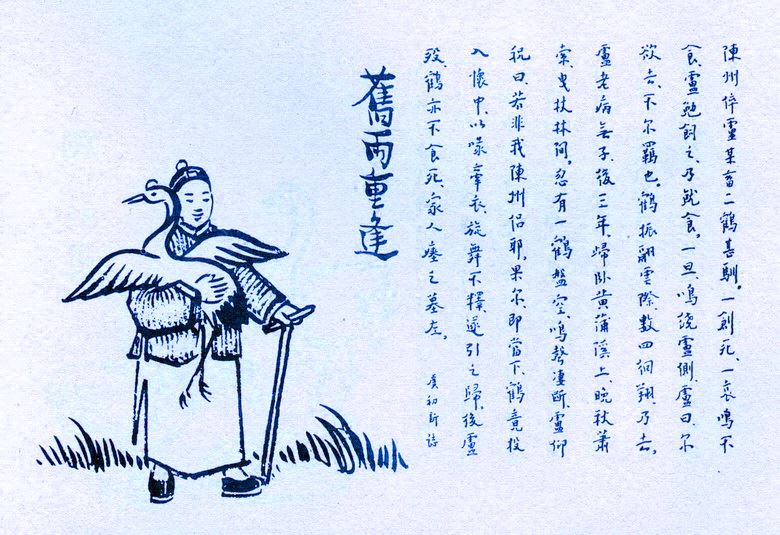 陳州倅盧某畜二鶴甚馴。一創死、一哀鳴不
食、盧勉飼之、乃就食。一旦、鳴繞盧側、盧曰、尔
欲去、不尔羈也。鶴振翮雲際、數四徊翔、乃去。
盧老病無子、後三年、歸臥黃蒲溪上、晚秋蕭
索、曳杖林間。忽有一鶴盤空、鳴聲凄斷、盧仰
祝曰、若非我陳州侶耶、果尔、即當下、鶴竟投
入懷中、以喙牽衣、旋舞不釋、遂引之歸、後盧
歿、鶴亦不食死、家人瘞之墓左。
虞初新誌
舊雨重逢